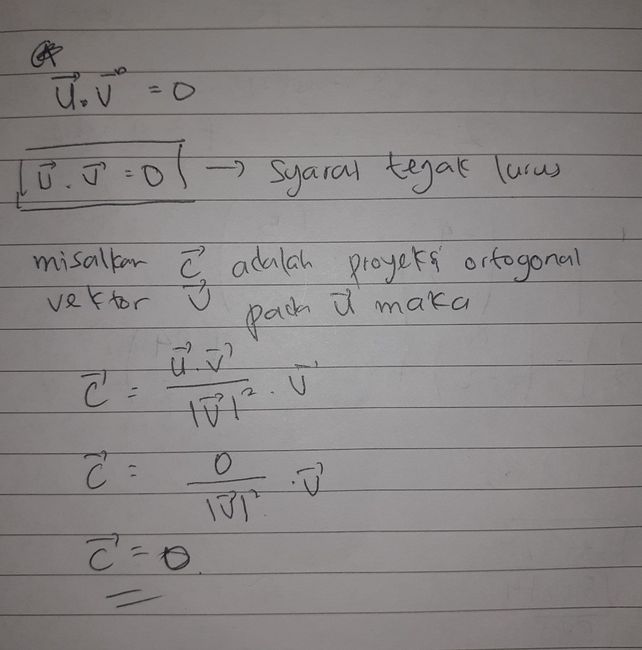 u⃗ . v⃗ = 0
u⃗ . v⃗ = 0 → syarat tegak lurus
misalkan c⃗ adalah proyeksi ortogonal
vektor v⃗ pada u⃗ maka
c⃗ = u⃗ . v⃗ / |v⃗|² . v⃗
c⃗ = 0 / |v⃗|² . v⃗
c⃗ = 0